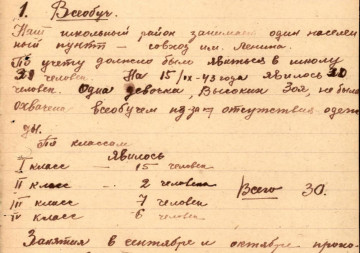 1. Всеобуч.
Наш школьный район занимает один населен
ный пункт — совхоз им. Ленина.
По учету должно было явиться в школу
31 человек. На 15/IX-43 года явилось 30
человек. Одна девочка, Высоких Зоя, не была
охвачена всеобучем из-за отсутствия одеж
ды.
По классам
явилось
I класс — 15 человек
II класс — 2 человека Всего 30.
III класс — 7 человек
IV класс — 6 человек
Занятия в сентябре и октябре прохо-